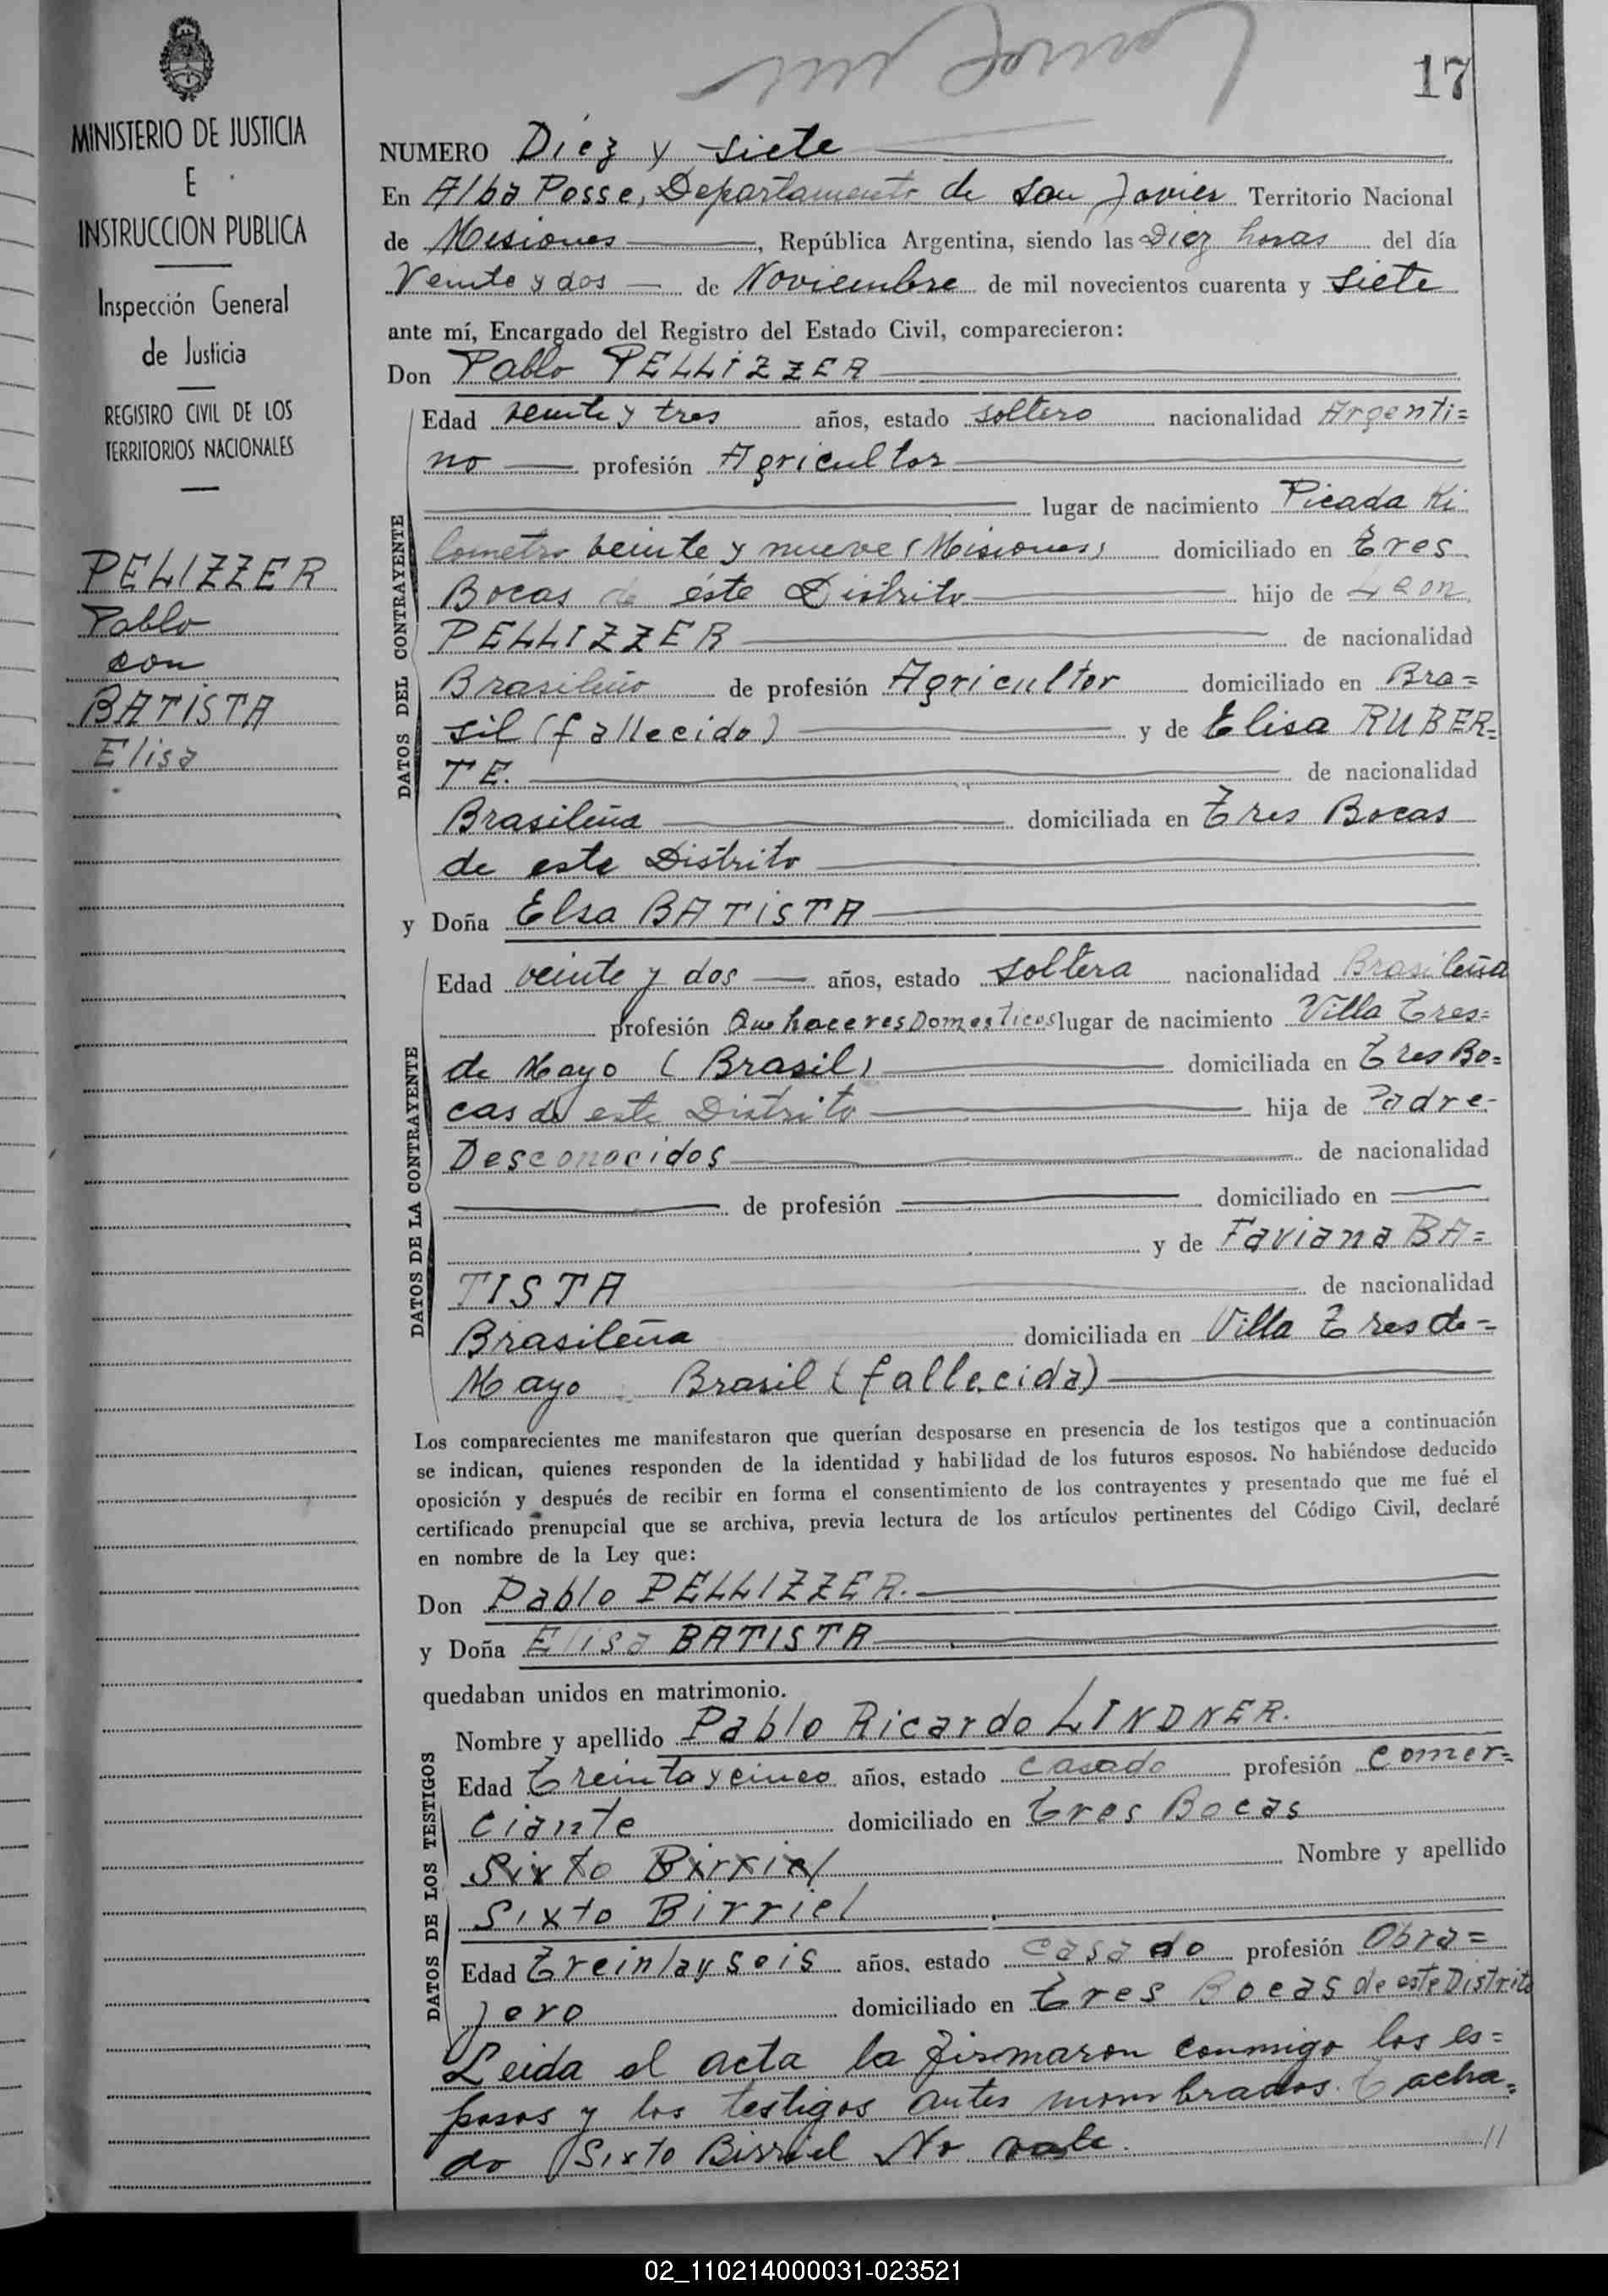 17
MINISTERIO DE JUSTICIA
E
INSTRUCCION PUBLICA
Inspección General
de Justicia
REGISTRO CIVIL DE LOS
TERRITORIOS NACIONALES
PELIZZER
Pablo
con
BATISTA
Elisa
NUMERO Diez y siete
En Alba Posse, Departamento de San Javier Territorio Nacional
de Misiones, República Argentina, siendo las Diez horas del día
Veinte y dos de Noviembre de mil novecientos cuarenta y siete
ante mí, Encargado del Registro del Estado Civil, comparecieron:
Don Pablo PELLIZZER
DATOS DEL CONTRAYENTE
Edad veinte y tres años, estado soltero nacionalidad Argenti=
no profesión Agricultor
lugar de nacimiento Picada Ki
lometro veinte y nueve (Misiones) domiciliado en Tres
Bocas de éste Distrito hijo de Leon
PELLIZZER de nacionalidad
Brasileño de profesión Agricultor domiciliado en Bra=
sil (fallecido) y de Elisa RUBER=
TE. de nacionalidad
Brasileña domiciliada en Tres Bocas
de este Distrito
y Doña Elsa BATISTA
DATOS DE LA CONTRAYENTE
Edad veinte y dos años, estado soltera nacionalidad Brasileña
profesión Quehaceres Domesticos lugar de nacimiento Villa Tres=
de Mayo (Brasil) domiciliada en Tres Bo=
cas de este Distrito hija de Padre-
Desconocidos de nacionalidad
de profesión domiciliado en
y de Faviana BA=
TISTA de nacionalidad
Brasileña domiciliada en Villa Tres de=
Mayo Brasil (fallecida)
Los comparecientes me manifestaron que querían desposarse en presencia de los testigos que a continuación
se indican, quienes responden de la identidad y habilidad de los futuros esposos. No habiéndose deducido
oposición y después de recibir en forma el consentimiento de los contrayentes y presentado que me fué el
certificado prenupcial que se archiva, previa lectura de los artículos pertinentes del Código Civil, declaré
en nombre de la Ley que:
Don Pablo PELLIZZER.
y Doña Elisa BATISTA
quedaban unidos en matrimonio.
DATOS DE LOS TESTIGOS
Nombre y apellido Pablo Ricardo LINDNER.
Edad Treinta y cinco años, estado casado profesión Comer=
ciante domiciliado en Tres Bocas
Sixto Birriel Nombre y apellido
Sixto Birriel
Edad Treinta y seis años, estado casado profesión Obra=
jero domiciliado en Tres Bocas de este Distrito
Leida el acta la firmaron conmigo los es=
posos y los testigos antes nombrados. Tacha=
do Sixto Birriel No vale. //
02_110214000031-023521